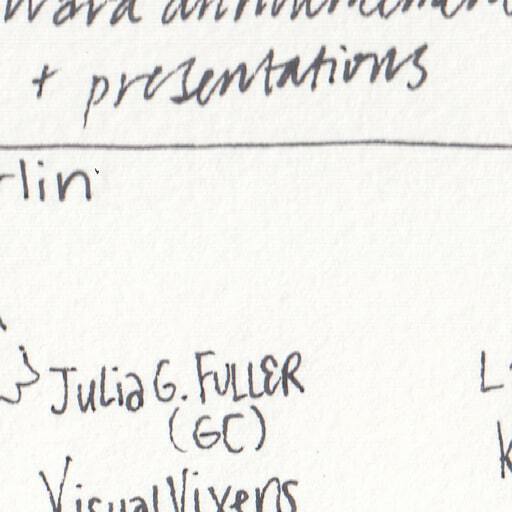 award announcement
+ presentations
lin
Julia G. FULLER
(GC)
VisualVixens